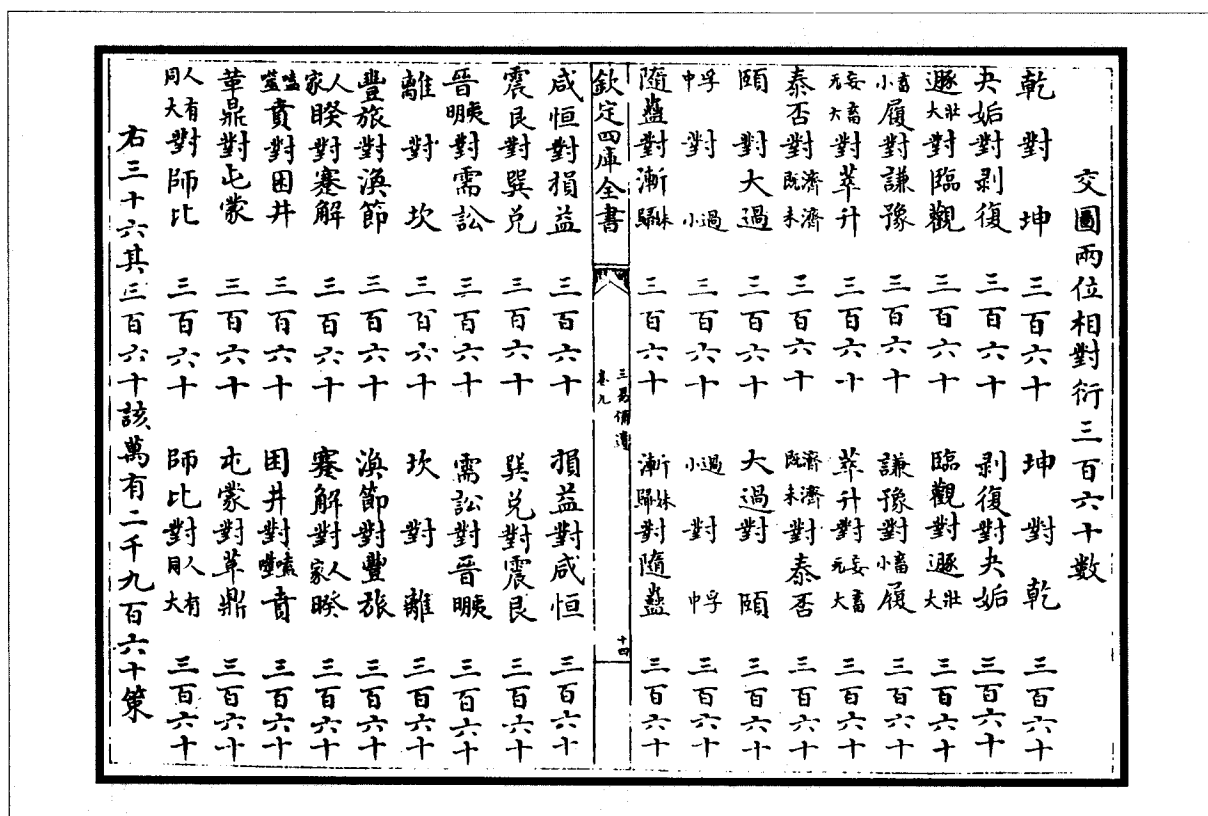 交圖兩位相對衍三百六十數
乾對坤三百六十坤對乾三百六十
夬姤對剥復三百六十剥復對夬姤三百六十
遯大壯對臨觀三百六十臨觀對遯大壯三百六十
小畜履對謙豫三百六十謙豫對小畜履三百六十
无妄大畜對萃升三百六十萃升對无妄大畜三百六十
泰否對既濟未濟三百六十既濟未濟對泰否三百六十
頤對大過三百六十大過對頤三百六十
中孚對小過三百六十小過對中孚三百六十
隨蠱對漸歸妹三百六十漸歸妹對隨蠱三百六十
欽定四庫全書
三易備遺
卷九
十四
咸恒對損益三百六十損益對咸恒三百六十
震艮對巽兌三百六十巽兌對震艮三百六十
晉明夷對需訟三百六十需訟對晉明夷三百六十
離對坎三百六十坎對離三百六十
豐旅對渙節三百六十渙節對豐旅三百六十
家人睽對蹇解三百六十蹇解對家人睽三百六十
噬嗑賁對困井三百六十困井對噬嗑賁三百六十
革鼎對屯蒙三百六十屯蒙對革鼎三百六十
同人大有對師比三百六十師比對同人大有三百六十
右三十六其三百六十該萬有二千九百六十策